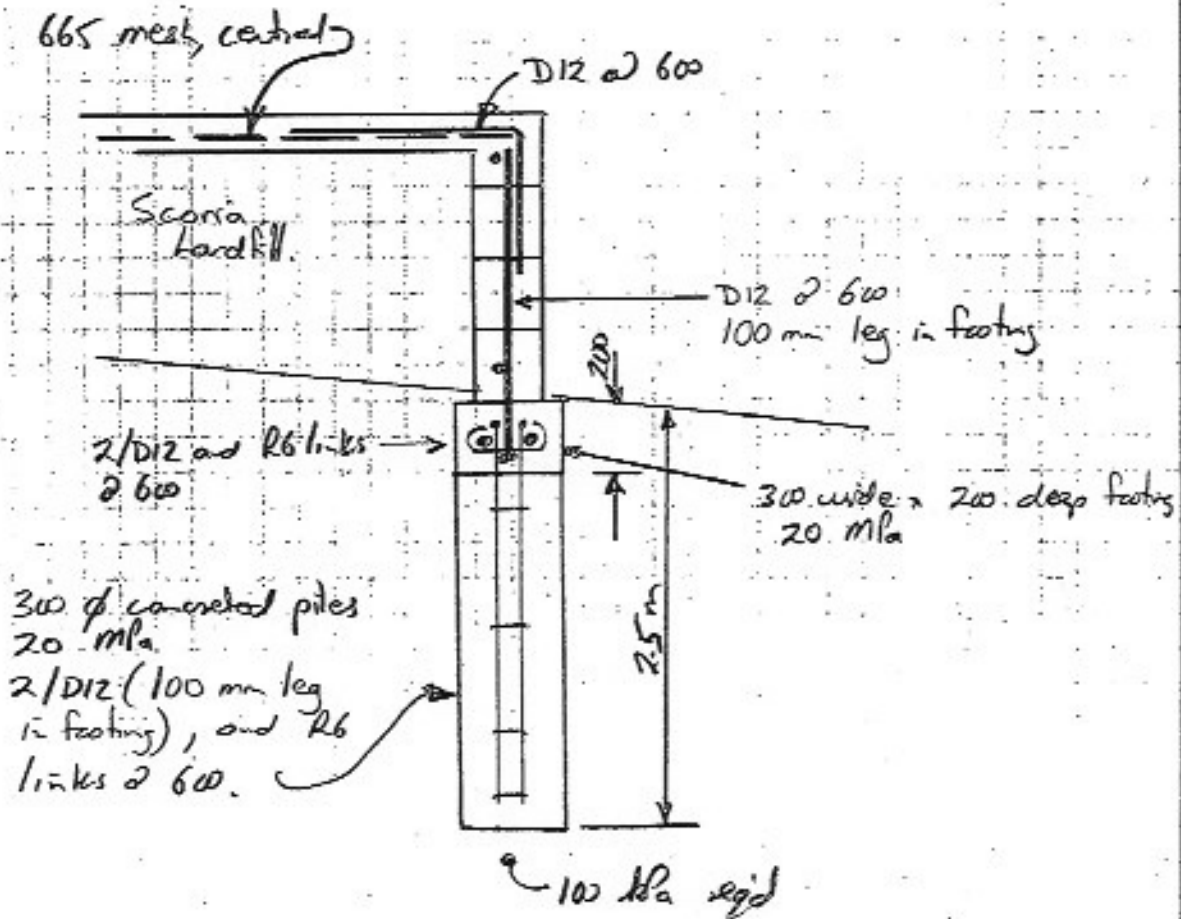 665 mesh central
D12 @ 600
Scoria
hardfill.
D12 @ 600
100 mm leg in footing
200
2/D12 and R6 links
@ 600
300 wide x 200 deep footing
20 MPa
300 φ concreted piles
20 MPa
2/D12 (100 mm leg
in footing), and R6
links @ 600.
2.5 m
100 kPa req'd